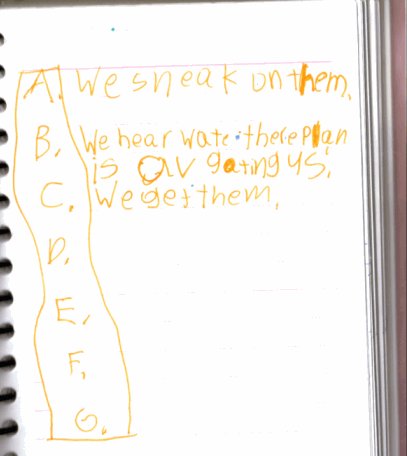 A. We sneak on them.
B. We hear wate there plan
is ov gating us.
C. We get them.
D.
E.
F.
G.